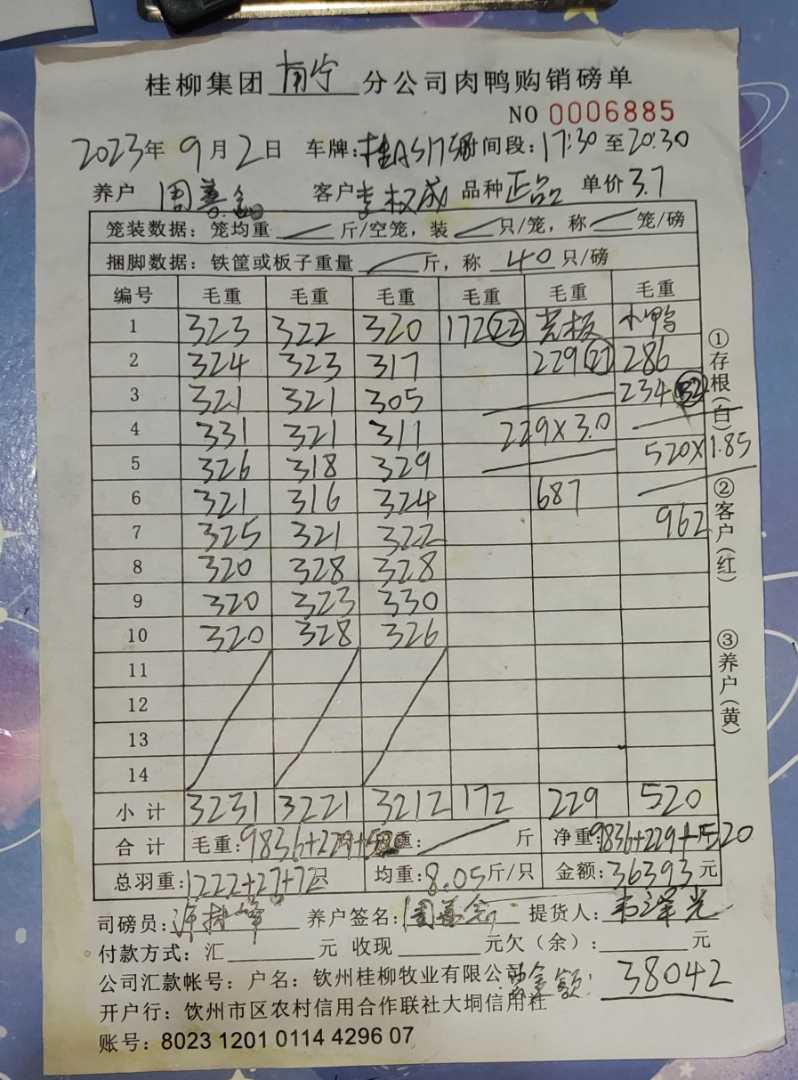 桂柳集团 南宁 分公司肉鸭购销磅单
NO 0006885
2023年 9月2日 车牌: 时间段:17:30至20:30
养户 周善 客户李权成 品种正品 单价3.7
笼装数据: 笼均重 斤/空笼, 装 只/笼, 称 笼/磅
捆脚数据: 铁筐或板子重量 斤, 称 40 只/磅
编号 毛重 毛重 毛重 毛重 毛重 毛重
1 323 322 320 172(22) 光板 小鸭
2 324 323 317 229(27) 286
3 321 321 305 234
4 331 321 311 229×3.0
5 326 318 329 520×1.85
6 321 316 324 687
7 325 321 322 962
8 320 328 328
9 320 323 330
10 320 328 326
11
12
13
14
小计 3231 3221 3212 172 229 520
合计 毛重:9836+229+520 斤 净重:9836+229+520
总羽重:1222+27+72只 均重:8.05斤/只 金额:36393元
司磅员: 养户签名:周善 提货人:韦泽光
付款方式:汇 元 收现 元欠(余): 元
公司汇款帐号: 户名: 钦州桂柳牧业有限公司 总金额: 38042
开户行: 饮州市区农村信用合作联社大垌信用社
账号: 8023 1201 0114 4296 07
①存根(白)
②客户(红)
③养户(黄)